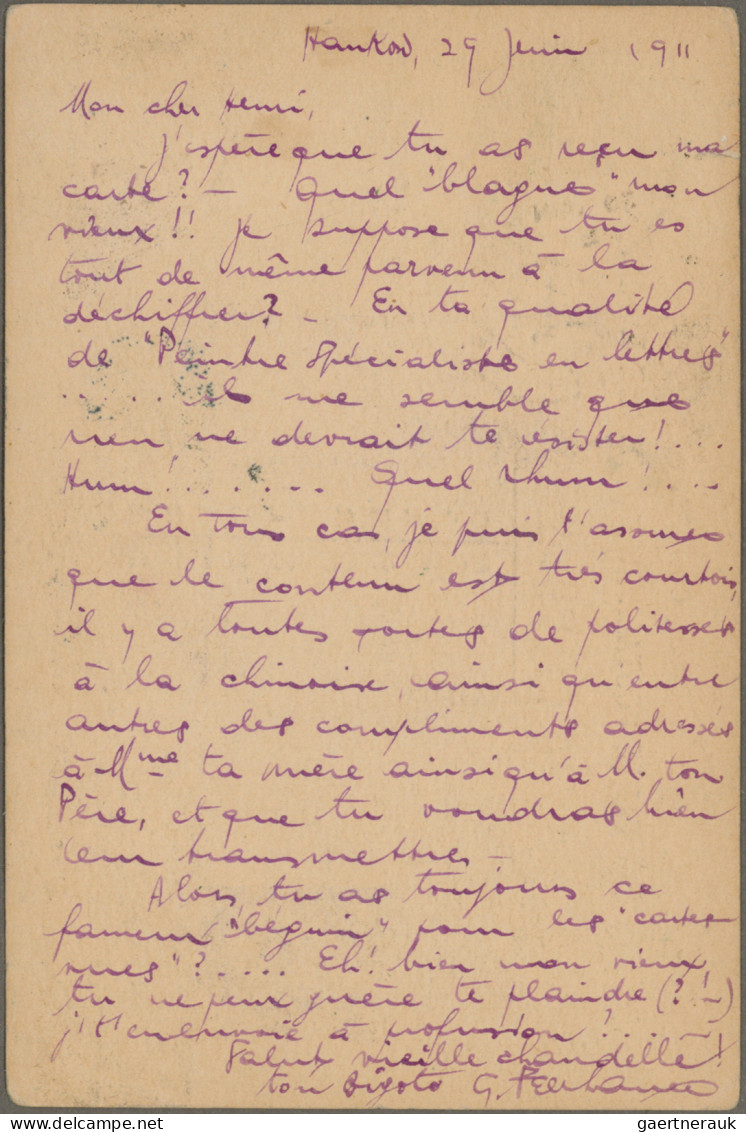 Hankow, 29 Juin 1911
Mon cher Henri,
J'espère que tu as reçu ma
carte? — Quel "blague" mon
vieux!! Je suppose que tu es
tout de même parvenu à la
déchiffrer? — En ta qualité
de "Peintre spécialiste en lettres"
..... il me semble que
rien ne devrait te résister!...
Hum!...... Quel rhum!....
En tous cas, je puis t'assurer
que le contenu est très courtois,
il y a toutes sortes de politesses
à la chinoise, ainsi qu'entre
autres des compliments adressés
à Mme ta mère ainsi qu'à M. ton
Père, et que tu voudras bien
leur transmettre. —
Alors, tu as toujours ce
fameux "béguin" pour les "cartes
vues"?.... Eh! bien mon vieux,
tu ne peux guère te plaindre (?!—)
j't'en envoie à profusion!...—
Salut vieille chandelle!
ton G.
gaertnerauk